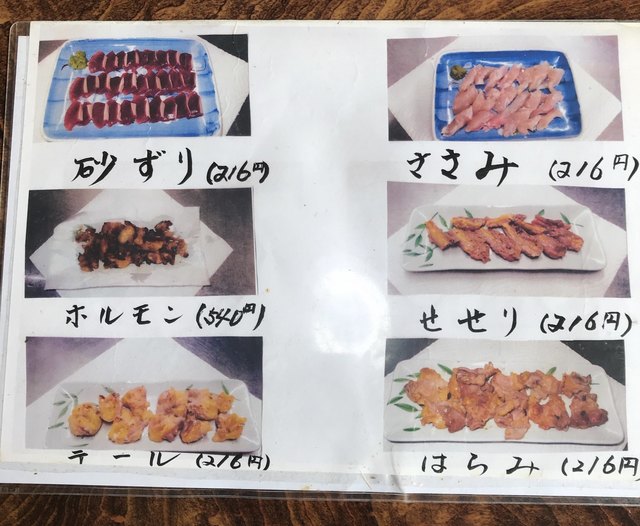 砂ずり(216円)
ささみ(216円)
ホルモン(540円)
せせり(216円)
テール(216円)
はらみ(216円)